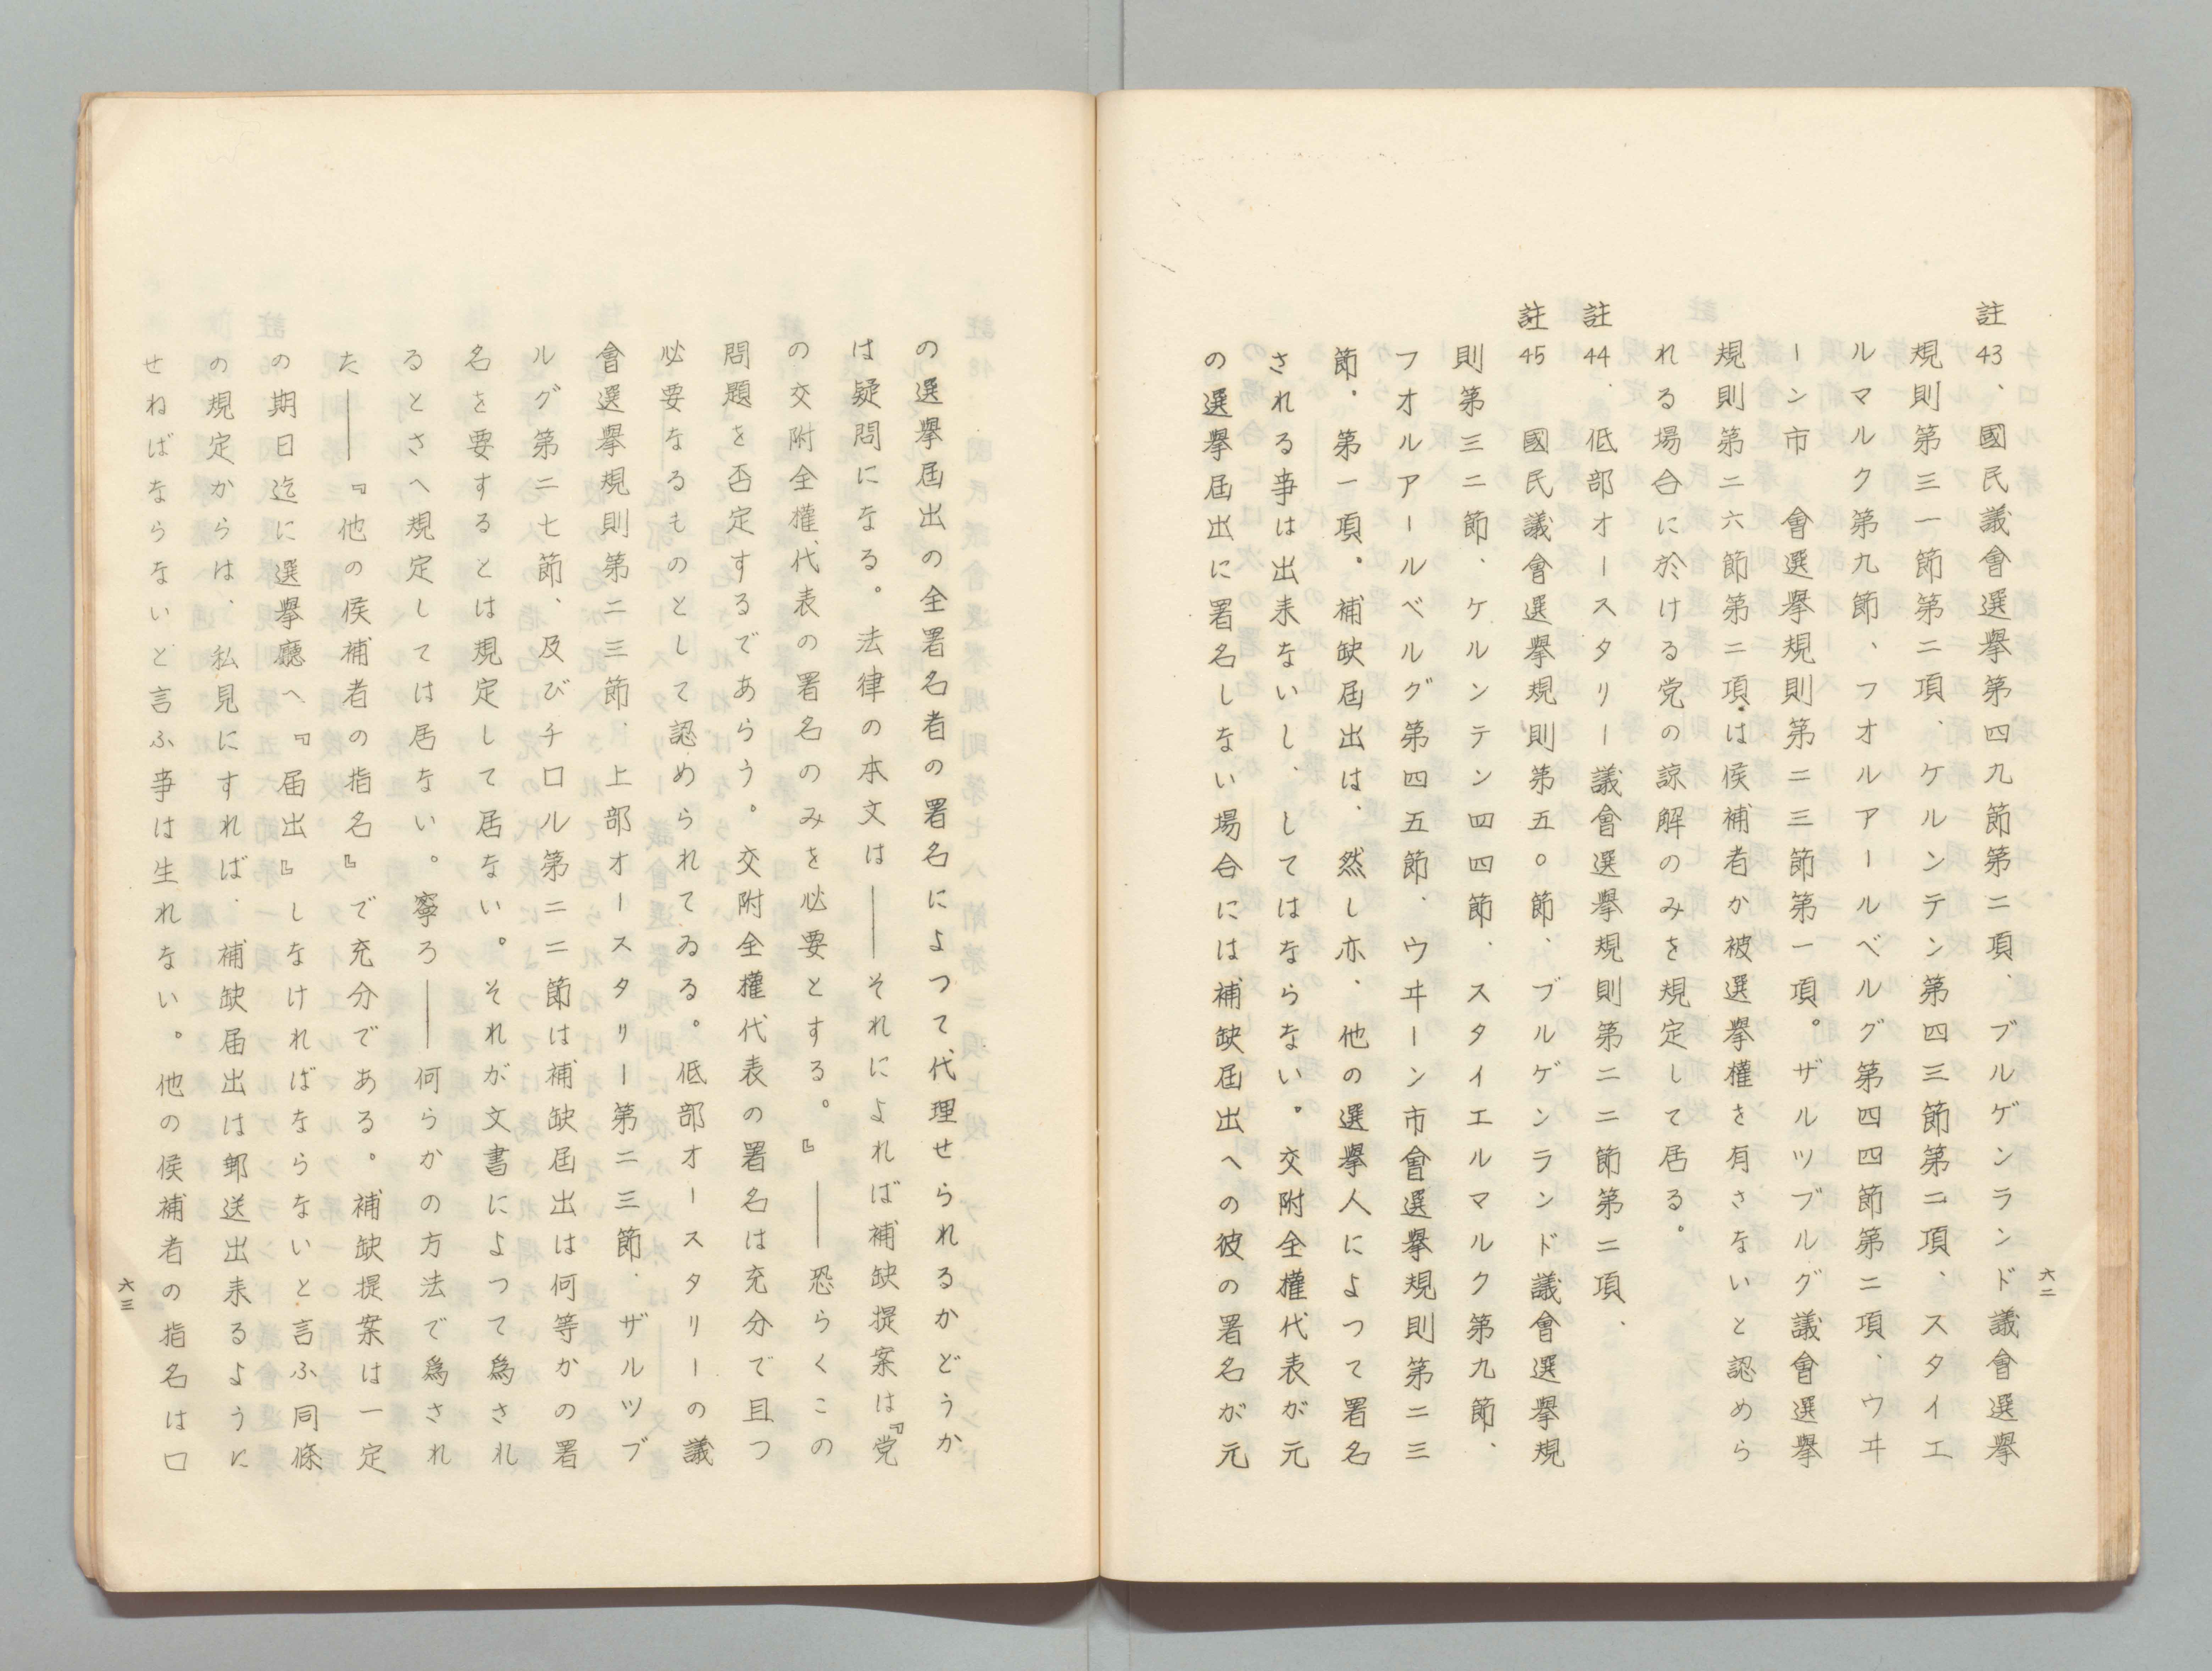 註43、國民議會選擧第四九節第二項、ブルゲンランド議會選擧
規則第三一節第二項、ケルンテン第四三節第二項、スタイエ
ルマルク第九節、フオルアールベルグ第四四節第二項、ウヰ
ーン市　會選擧規則第二三節第一項。ザルツブルグ議會選擧
規則第二六節第二項は侯補者か被選擧權を有さないと認めら
れる場合に於ける党の諒解のみを規定して居る。
註44、低部オースタリー議會選擧規則第二二節第二項、
註45　國民議會選擧規則第五〇節、ブルゲンランド議會選擧規
則第三二節、ケルンテン四四節、スタイエルマルク第九節、
フオルアールベルグ第四五節、ウヰーン市會選擧規則第二三
節、第一項。補缺屆出は、然し亦、他の選擧人によつて署名
される事は出来ないし、してはならない。交附全權代表が元
の選擧屆出に署名しない場合には補缺屆出への彼の署名が元
六二
の選擧屆出の全署名者の署名によつて代理せられるかどうか
は疑問になる。法律の本文は――それによれば補缺提案は『党
の交附全權代表の署名のみを必要とする。』――恐らくこの
問題を否定するであらう。交附全權代表の署名は充分で且つ
必要なるものとして認められてゐる。低部オースタリーの議
會選擧規則第二三節、上部オースタリー第二三節、ザルツブ
ルグ第二七節、及びチロル第二二節は補缺屆出は何等かの署
名を要するとは規定して居ない。それが文書によつて爲され
るとさへ規定しては居ない。寧ろ――何らかの方法で爲され
た――『他の侯補者の指名』で充分である。補缺提案は一定
の期日迄に選擧廳へ『届出』しなければならないと言ふ同條
の規定からは、私見にすれば、補缺届出は郵送出来るように
せねばならないと言ふ事は生れない。他の侯補者の指名は口
六三